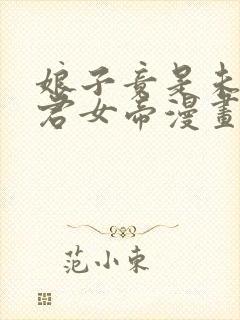 娘子竟是未
君女帝漫畫
范小東